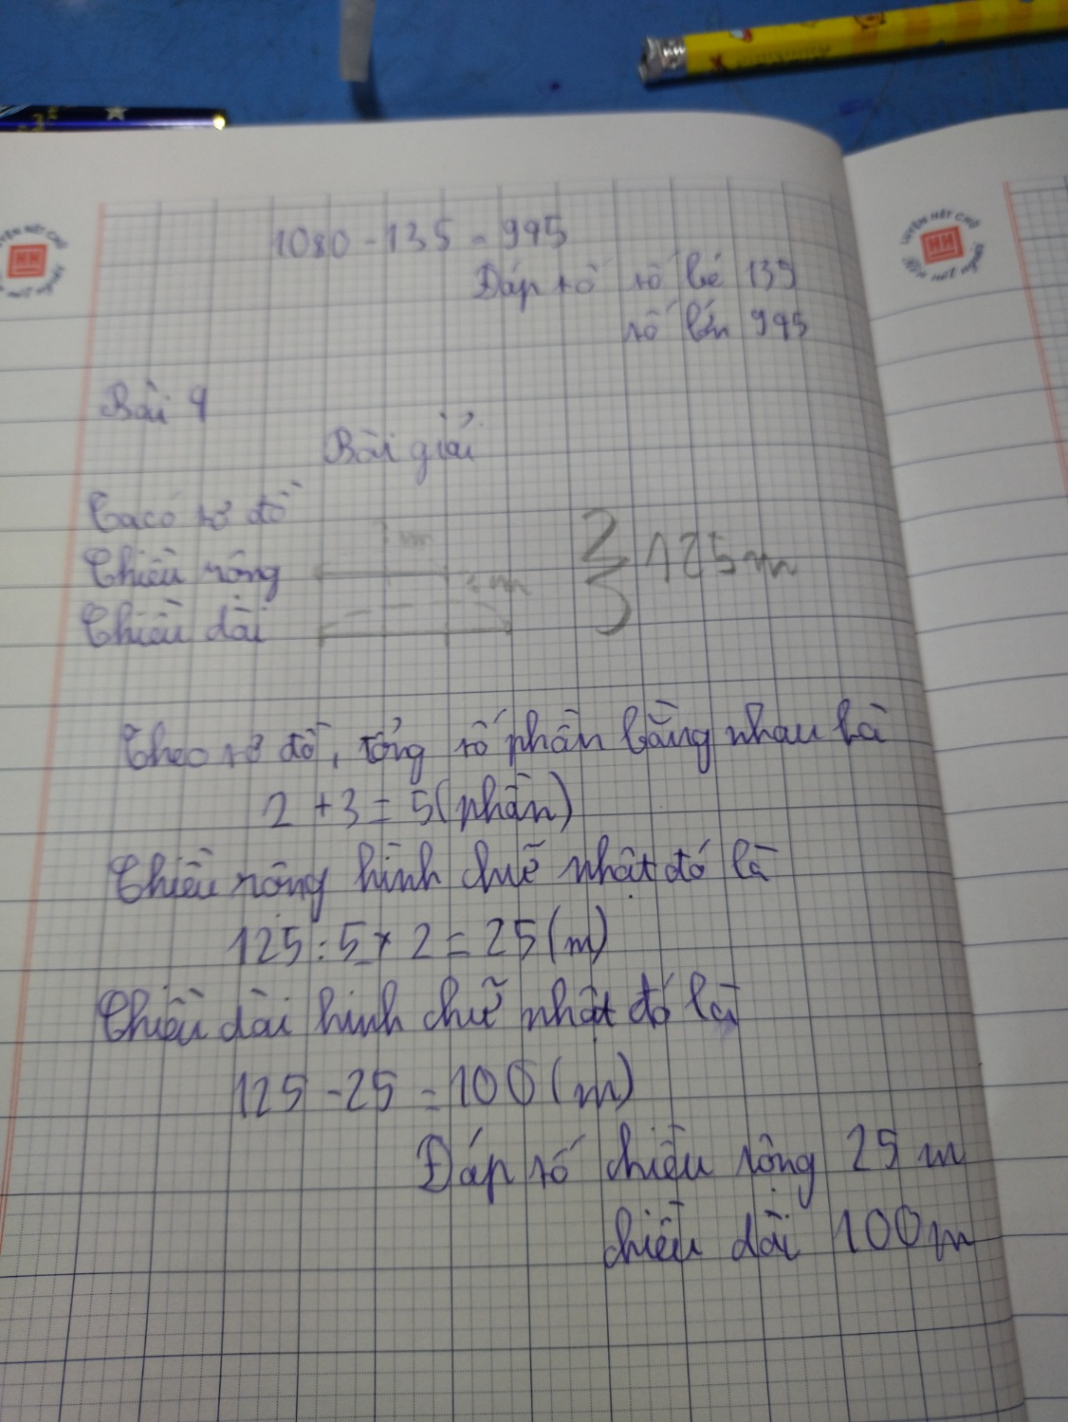 1080 - 135 = 995
Đáp số số bé 135
số lớn 995
Bài 4
Bài giải
Ta có sơ đồ
Chiều rộng
125m
Chiều dài
Theo sơ đồ, tổng số phần bằng nhau là
2 + 3 = 5 (phần)
Chiều rông hình chữ nhật đó là
125 : 5 x 2 = 25 (m)
Chiều dài hinh chữ nhật đó là
125 - 25 = 100 (m)
Đáp số chiều rộng 25 m
chiều dài 100m
HH
HH